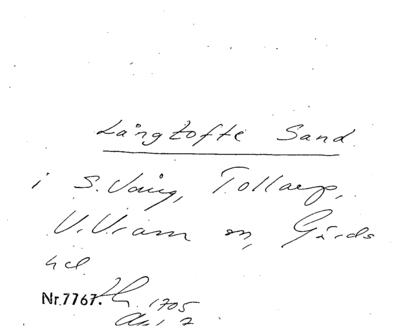 Långtofte Sand
i S. Vång, Tollarp,
V. Vram sn, Gärds
hd.
Nr. 7767. Lh. 1705
Akt 2